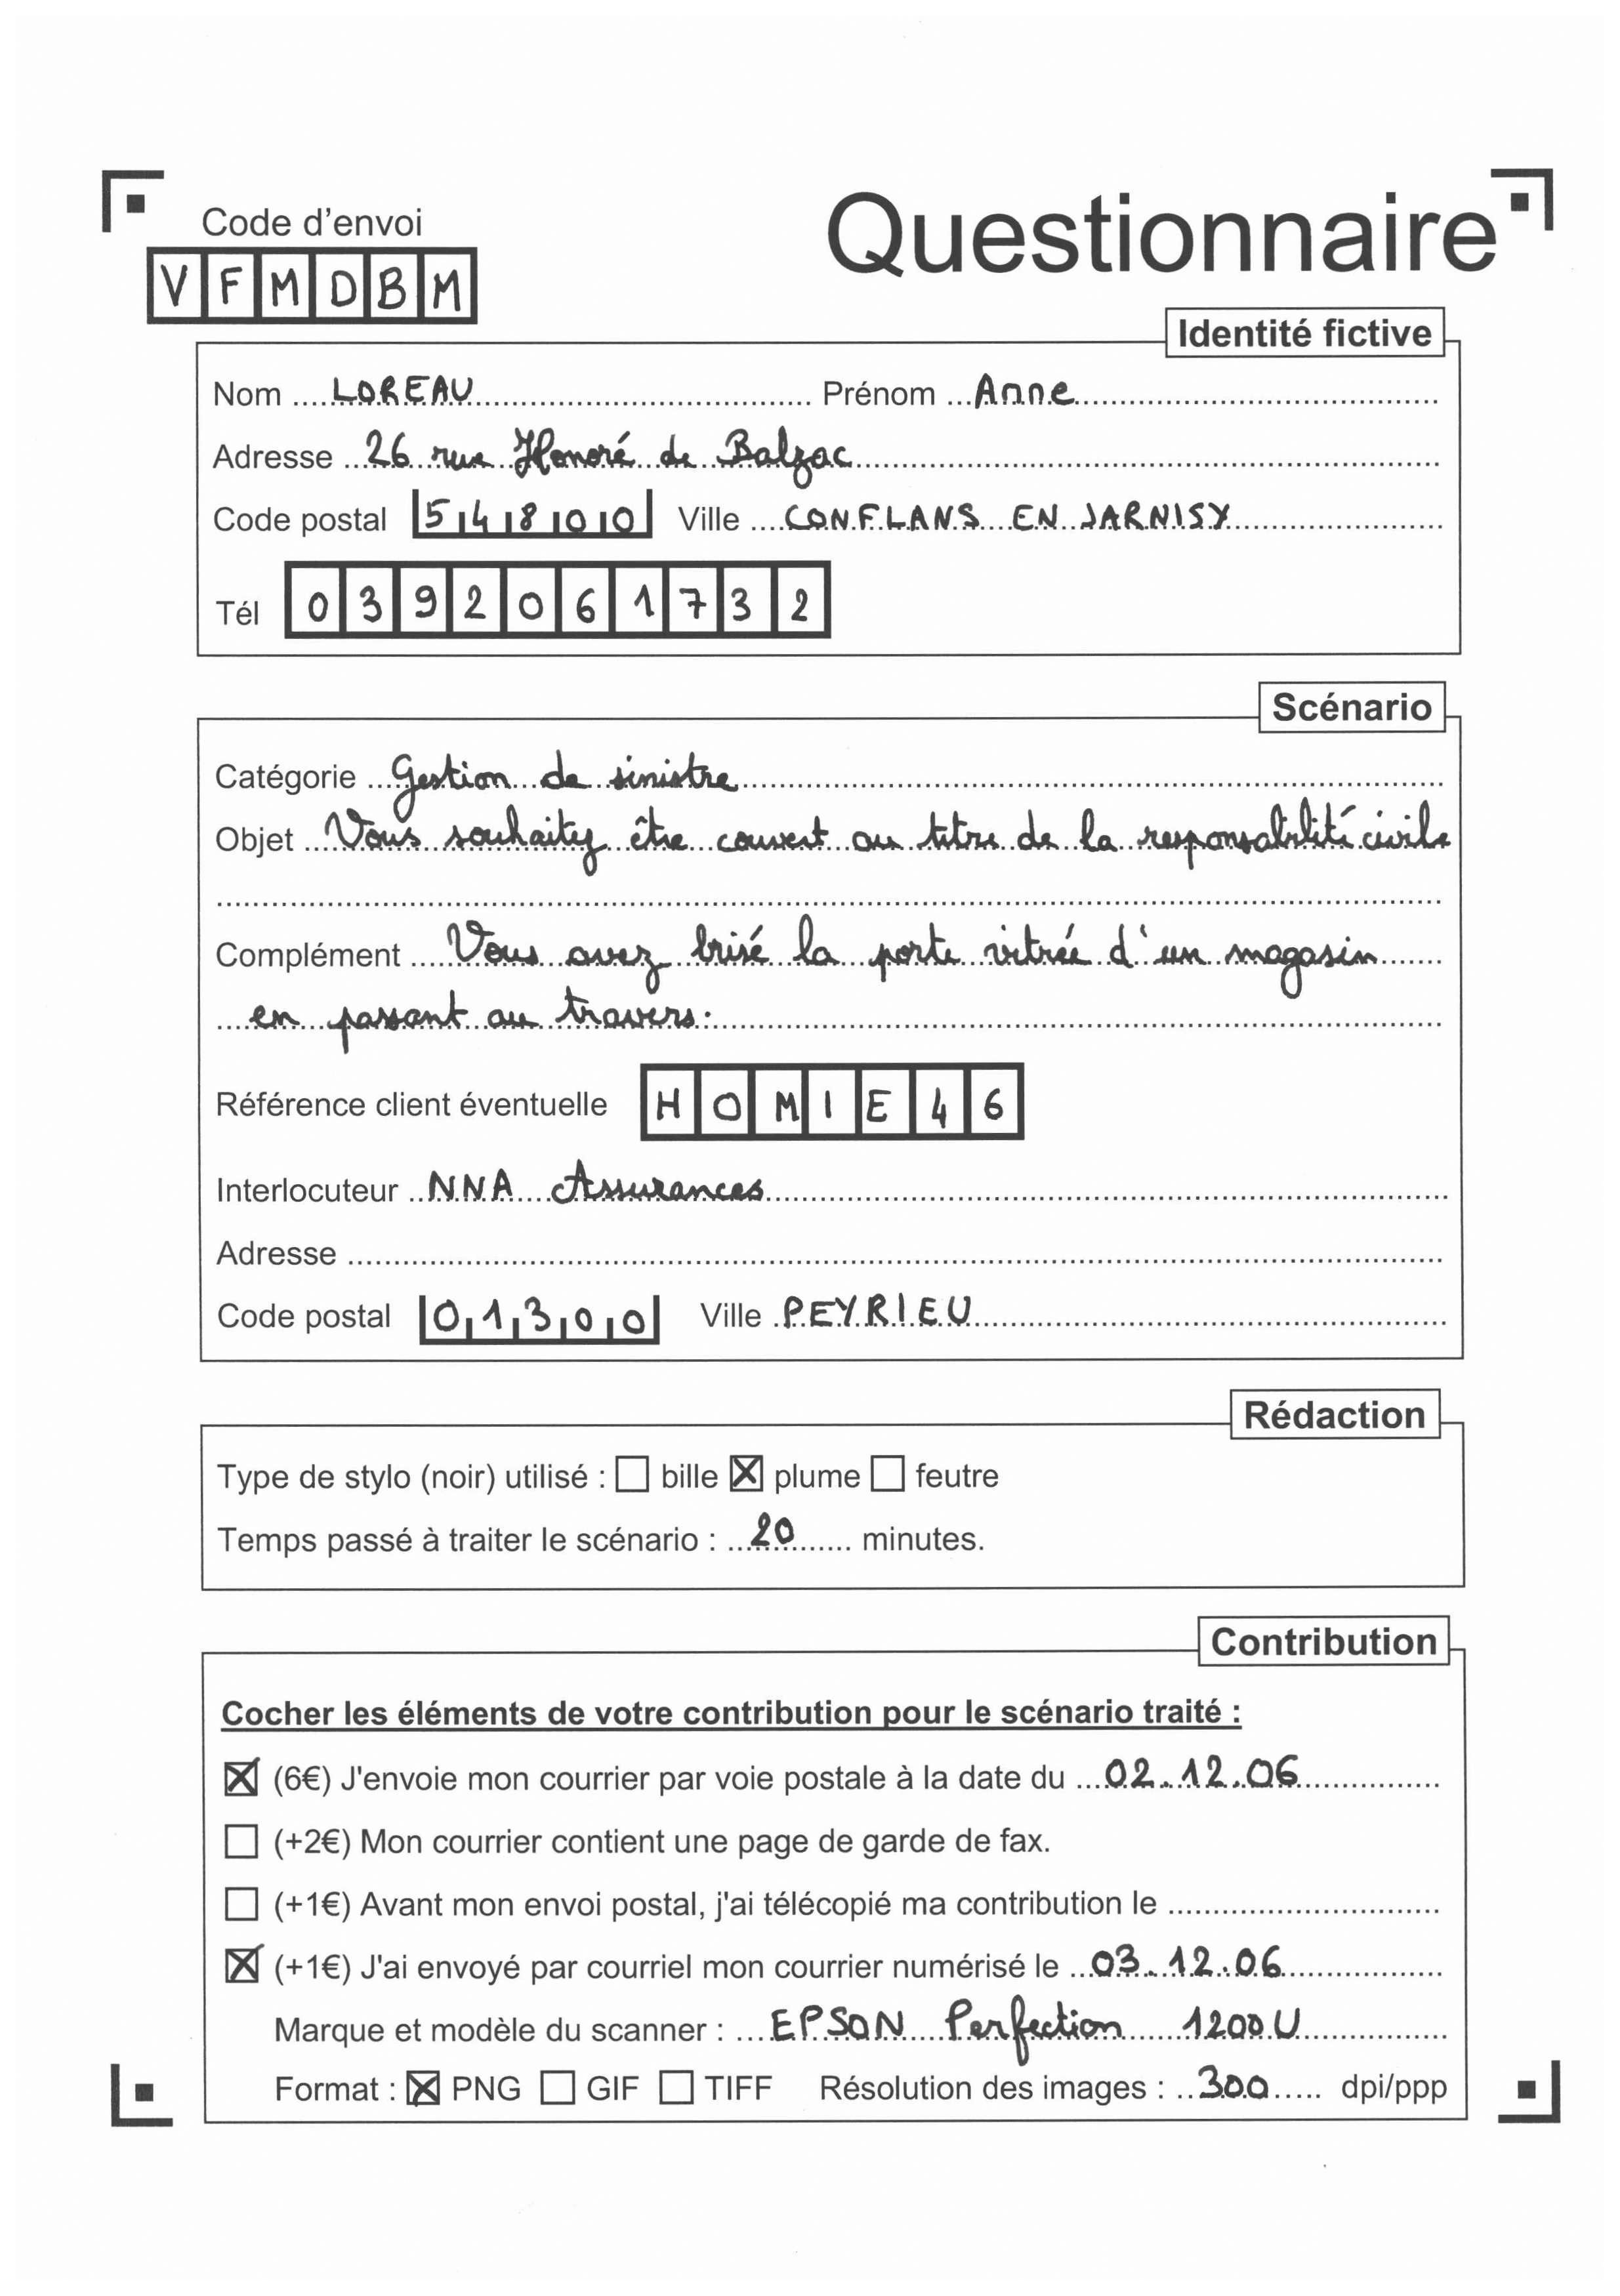 Code d'envoi
Questionnaire
V F M D B M
Identité fictive
Nom .... LOREAU Prénom ... Anne
Adresse ... 26 rue Honoré de Balzac
Code postal 54800 Ville .... CONFLANS EN JARNISY
Tél 0392061732
Scénario
Catégorie ... Gestion de sinistre
Objet .... Vous souhaitez être couvert au titre de la responsabilité civile
Complément .... Vous avez brisé la porte vitrée d'un magasin
en passant au travers.
Référence client éventuelle HOMIE46
Interlocuteur .. NNA Assurances
Adresse
Code postal 01300 Ville . PEYRIEU
Rédaction
Type de stylo (noir) utilisé : ☐ bille ☒ plume ☐ feutre
Temps passé à traiter le scénario : .. 20 ..... minutes.
Contribution
Cocher les éléments de votre contribution pour le scénario traité :
☒ (6€) J'envoie mon courrier par voie postale à la date du ... 02.12.06
☐ (+2€) Mon courrier contient une page de garde de fax.
☐ (+1€) Avant mon envoi postal, j'ai télécopié ma contribution le
☒ (+1€) J'ai envoyé par courriel mon courrier numérisé le ... 03.12.06
Marque et modèle du scanner : ... EPSON Perfection 1200U
Format : ☒ PNG ☐ GIF ☐ TIFF Résolution des images : .. 300 ..... dpi/ppp